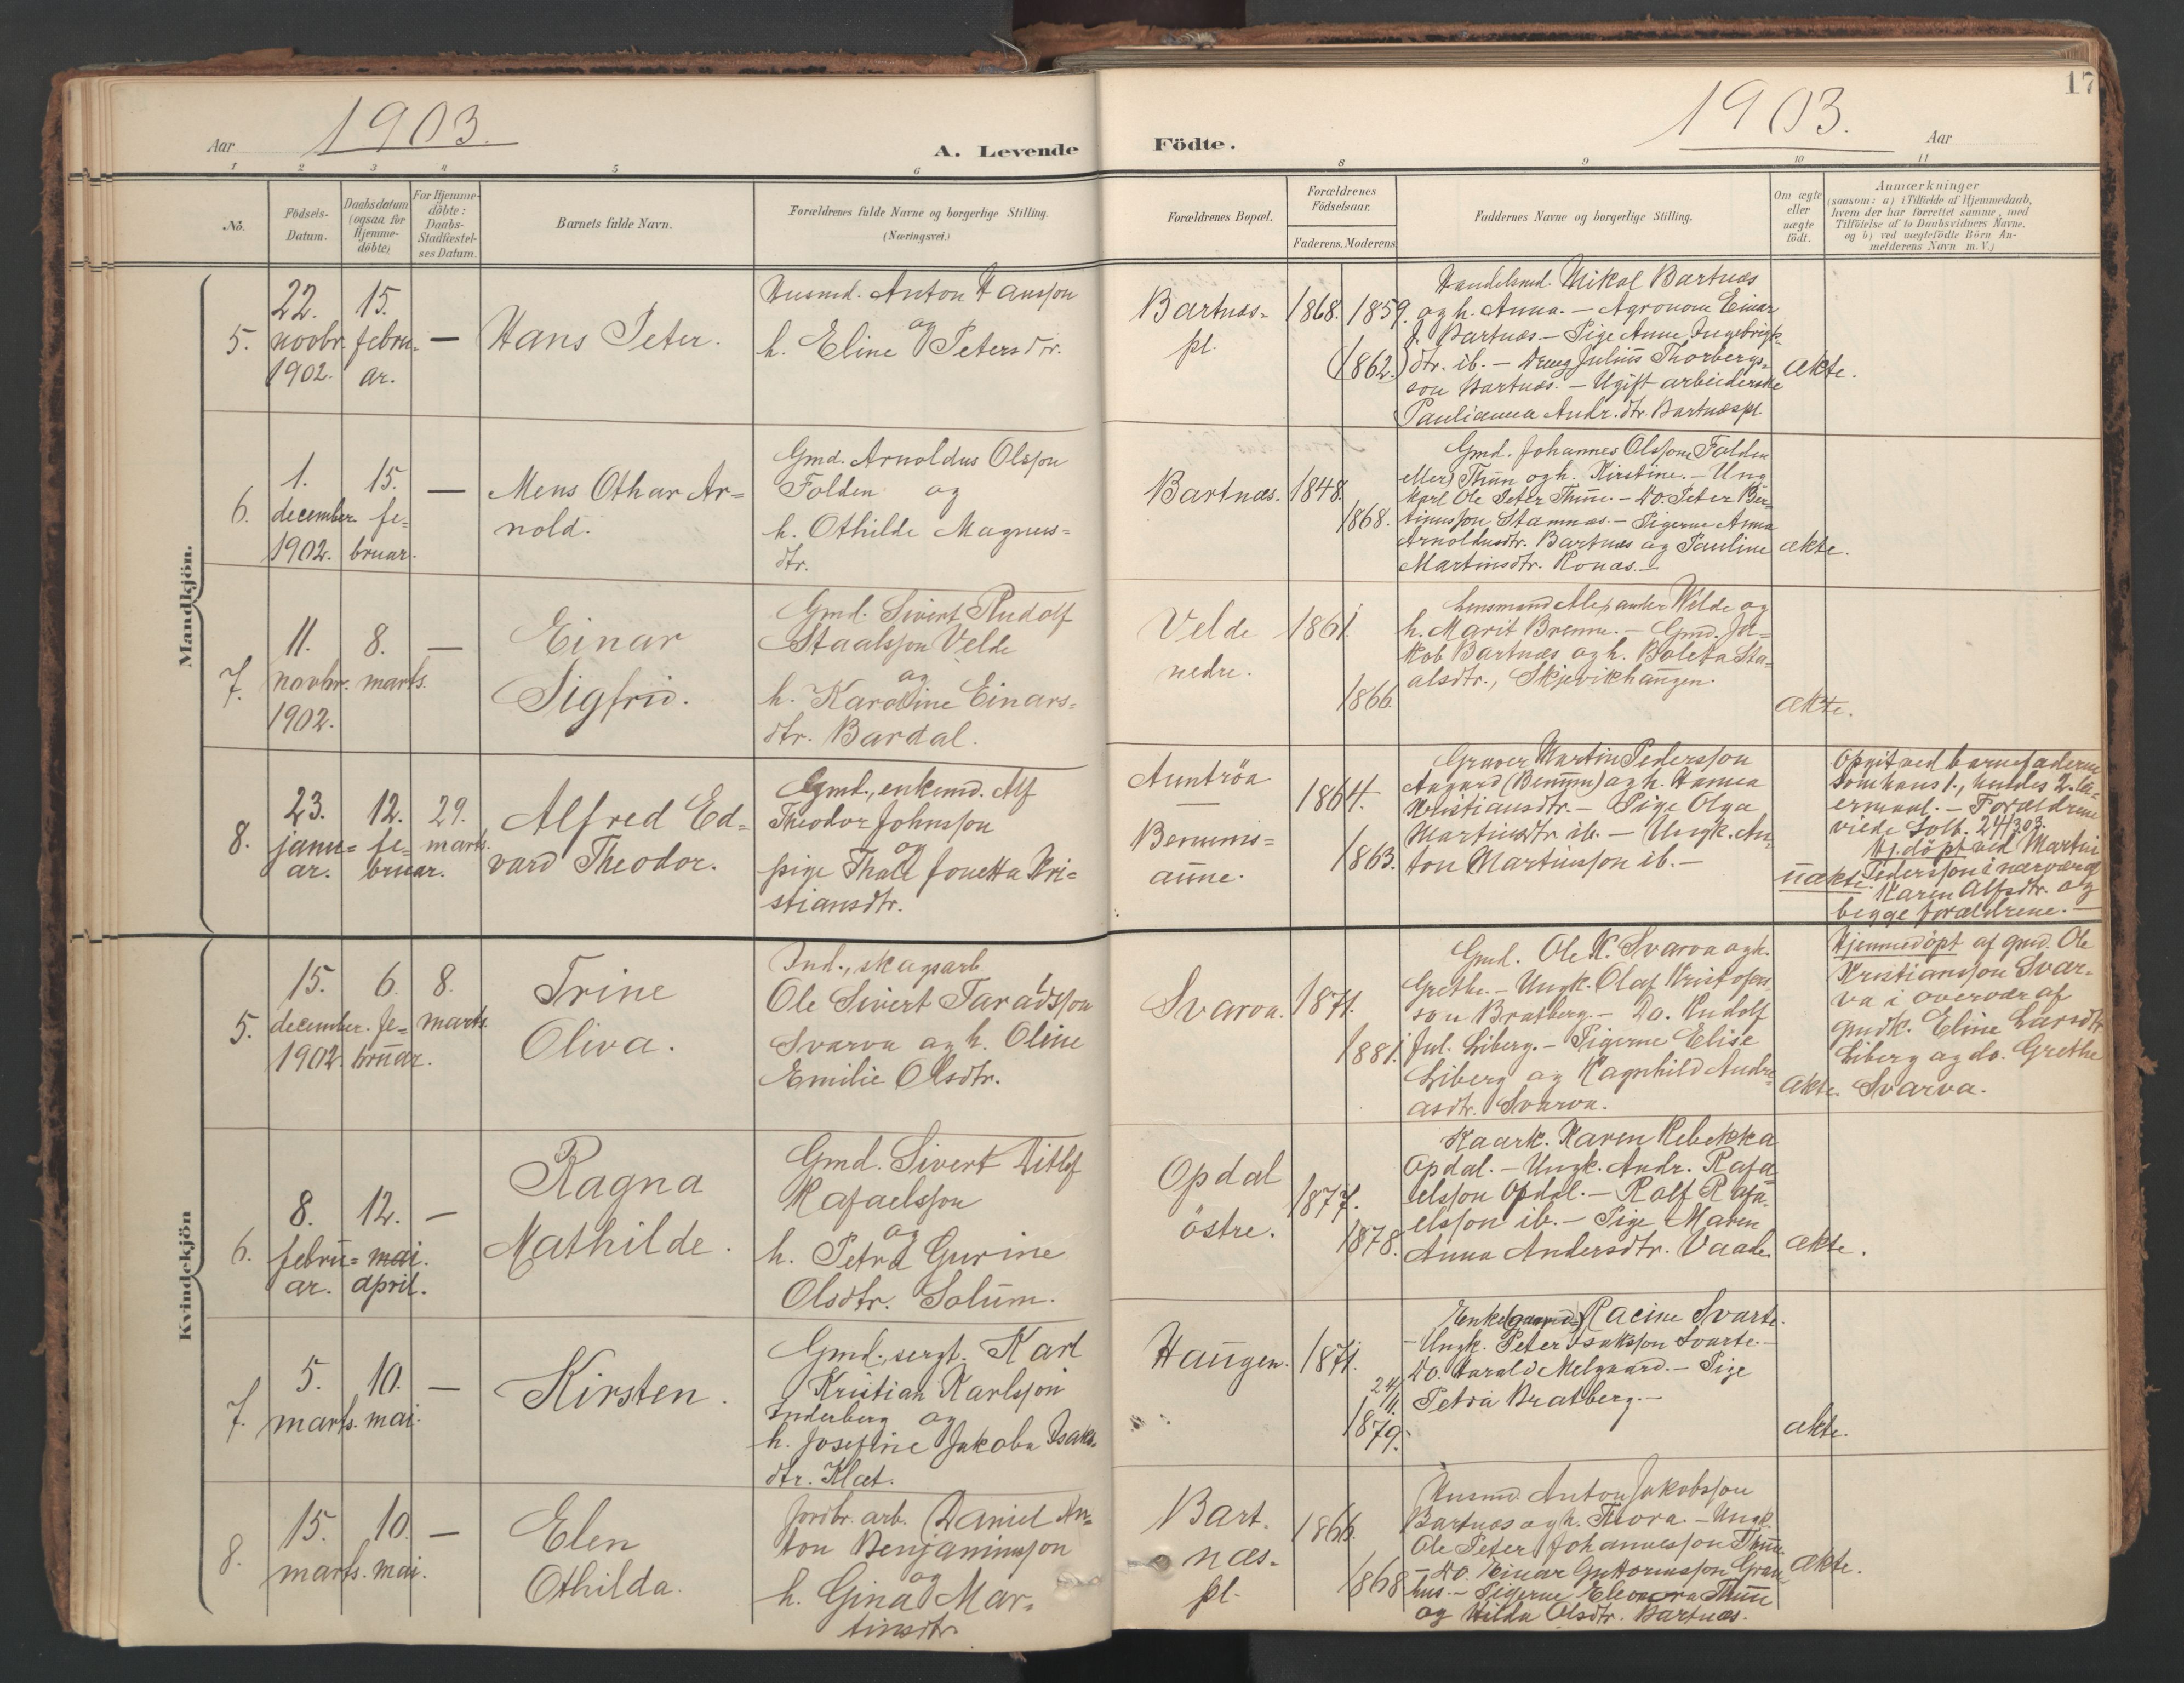 17
Aar 1903.
A. Levende Födte.
1903. Aar
1 2 3 4 5 6 8 9 10 11
No.
Födsels-
Datum.
Daabsdatum
(ogsaa for
Hjemme-
döbte)
For Hjemme-
döbte:
Daabs-
Stadfæstel-
ses Datum.
Barnets fulde Navn.
Forældrenes fulde Navne og borgerlige Stilling.
(Næringsvei.)
Forældrenes Bopæl.
Forældrenes
Födselsaar.
Faderens. Moderens.
Faddernes Navne og borgerlige Stilling.
Om ægte
eller
uægte
födt.
Anmærkninger
(saasom: a) i Tilfælde af Hjemmedaab,
hvem der har forrettet samme, med
Tilföielse af to Daabsvidners Navne.
og b) ved uægtefödte Börn An-
melderens Navn m. V.)
Mandkjön.
5.
22.
novbr.
1902.
15.
febru-
ar.
—
Hans Peter.
Husmd. Anton Hansson
og
h. Eline Petersdtr.
Bartnæs-
pl.
1868. 1859.
(1862.)
Handelsmd. Mikal Bartnæs
og h. Anna. - Agronom Einar
J. Bartnæs - Pige Anne Ingebrigts-
dtr. ib. - Dreng Julius Thorbergs-
son Bartnæs. - Ugift arbeiderske
Paulianna Andr.dtr. Bartnæspl.
ækte.
6.
1.
december.
1902.
15.
fe-
bruar.
—
Mens Othar Ar-
nold.
Gmd. Arnoldus Olsson
Folden og
h. Othilde Magnus-
dtr.
Bartnæs.
1848.
1868.
Gmd. Johannes Olsson Folden
eller Thun og h. Kirstine. - Ung
karl Ole Peter Thun. - Do. Peter Ber-
tinusson Stamnæs. - Pigerne Anna
Arnoldusdtr. Bartnæs og Pauline
Martinsdtr. Konæs. -
ækte.
7.
11.
novbr.
1902.
8.
marts.
—
Einar
Sigfrid.
Gmd. Sivert Rudolf
Staalsson Velde
og
h. Karoline Einars-
dtr. Bardal.
Velde
nedre.
1861.
1866.
Lensmand Alexander Welde og
h. Marit Brenne. - Gmd. Ja-
kob Bartnæs og h. Boletta Sta-
alsdtr., Skjevikhaugen.
ækte.
8.
23.
janu-
ar.
12.
fe-
bruar.
29.
marts.
Alfred Ed-
vard Theodor.
Gmd., enkemd. Alf
Theodor Johnsson
og
pige Thale Jonetta Kri-
stiansdtr.
Aunträa
—
Benums-
aune.
1864.
1863.
Graver Martin Pedersson
Aagaard (Benum) og h. Hanna
Kristiansdtr. - Pige Olga
Martinsdtr. ib. - Ungk. An-
ton Martinsson ib. -
uækte.
Opgit ved barnefaderen
som hans 1., hendes 2. lei-
ermaal. - Forældrene
viede Solb. 24/3 03.
Hj.döpt ved Martin
Pedersson i nærvær af
Karen Alfsdtr. og
begge forældrene. -
Kvindekjön
5.
15.
december.
1902.
6.
fe-
bruar.
8.
marts.
Trine
Oliva.
Ind., skogsarb.
Ole Sivert Taraldsson
Svarva og h. Oline
Emilie Olsdtr.
Svarva.
1871.
1881.
Gmd. Ole K. Svarva og h.
Grethe. - Ungk. Olaf Kristofers-
son Bratberg. - Do. Rudolf
Jul. Liberg. - Pigerne Elise
Liberg og Ragnhild Andre-
asdtr. Svarva.
ækte.
Hjemmedöpt af gmd. Ole
Kristiansson Svar-
va i overvær af
gmdk. Eline Larsdtr.
Liberg og do. Grethe
Svarva.
6.
8.
febru-
ar.
12.
mai.
april.
—
Ragna
Mathilde.
Gmd. Sivert Ditlef
Rafaelsson
og
h. Petra Gurine
Olsdtr. Solum.
Opdal
östre.
1877.
1878.
Kaark. Karen Rebekka
Opdal. - Ungk. Andr. Rafa-
elsson Opdal. - Rolf Rafa-
elsson ib. - Pige Maren
Anna Andersdtr. Vaade.
ækte.
7.
5.
marts.
10.
mai.
—
Kirsten.
Gmd., sergt. Karl
Kristian Karlsson
Inderberg og
h. Josefine Jakoba Isaks-
dtr. Klæt.
Haugen.
1871.
24/
11.
1879.
Enke (gaard) Racine Svarte.
- Ungk. Peter Isaksson Svarte. -
Do. Harald Melgaard. - Pige
Petra Bratberg. -
ækte.
8.
15.
marts.
10.
mai.
—
Elen
Othilda.
Jordbr.arb. Daniel An-
ton Benjaminsson
og
h. Gina Mar-
tinsdtr.
Bart-
næs-
pl.
1866.
1868
Husmd. Anton Jakobsson
Bartnæs og h. Thora. - Ungk.
Ole Peter Johannesson Thun
- Do. Einar Guttormsson Gran-
hus. - Pigerne Eleonora Thun
og Hilda Olsdtr. Bartnæs.
ækte.